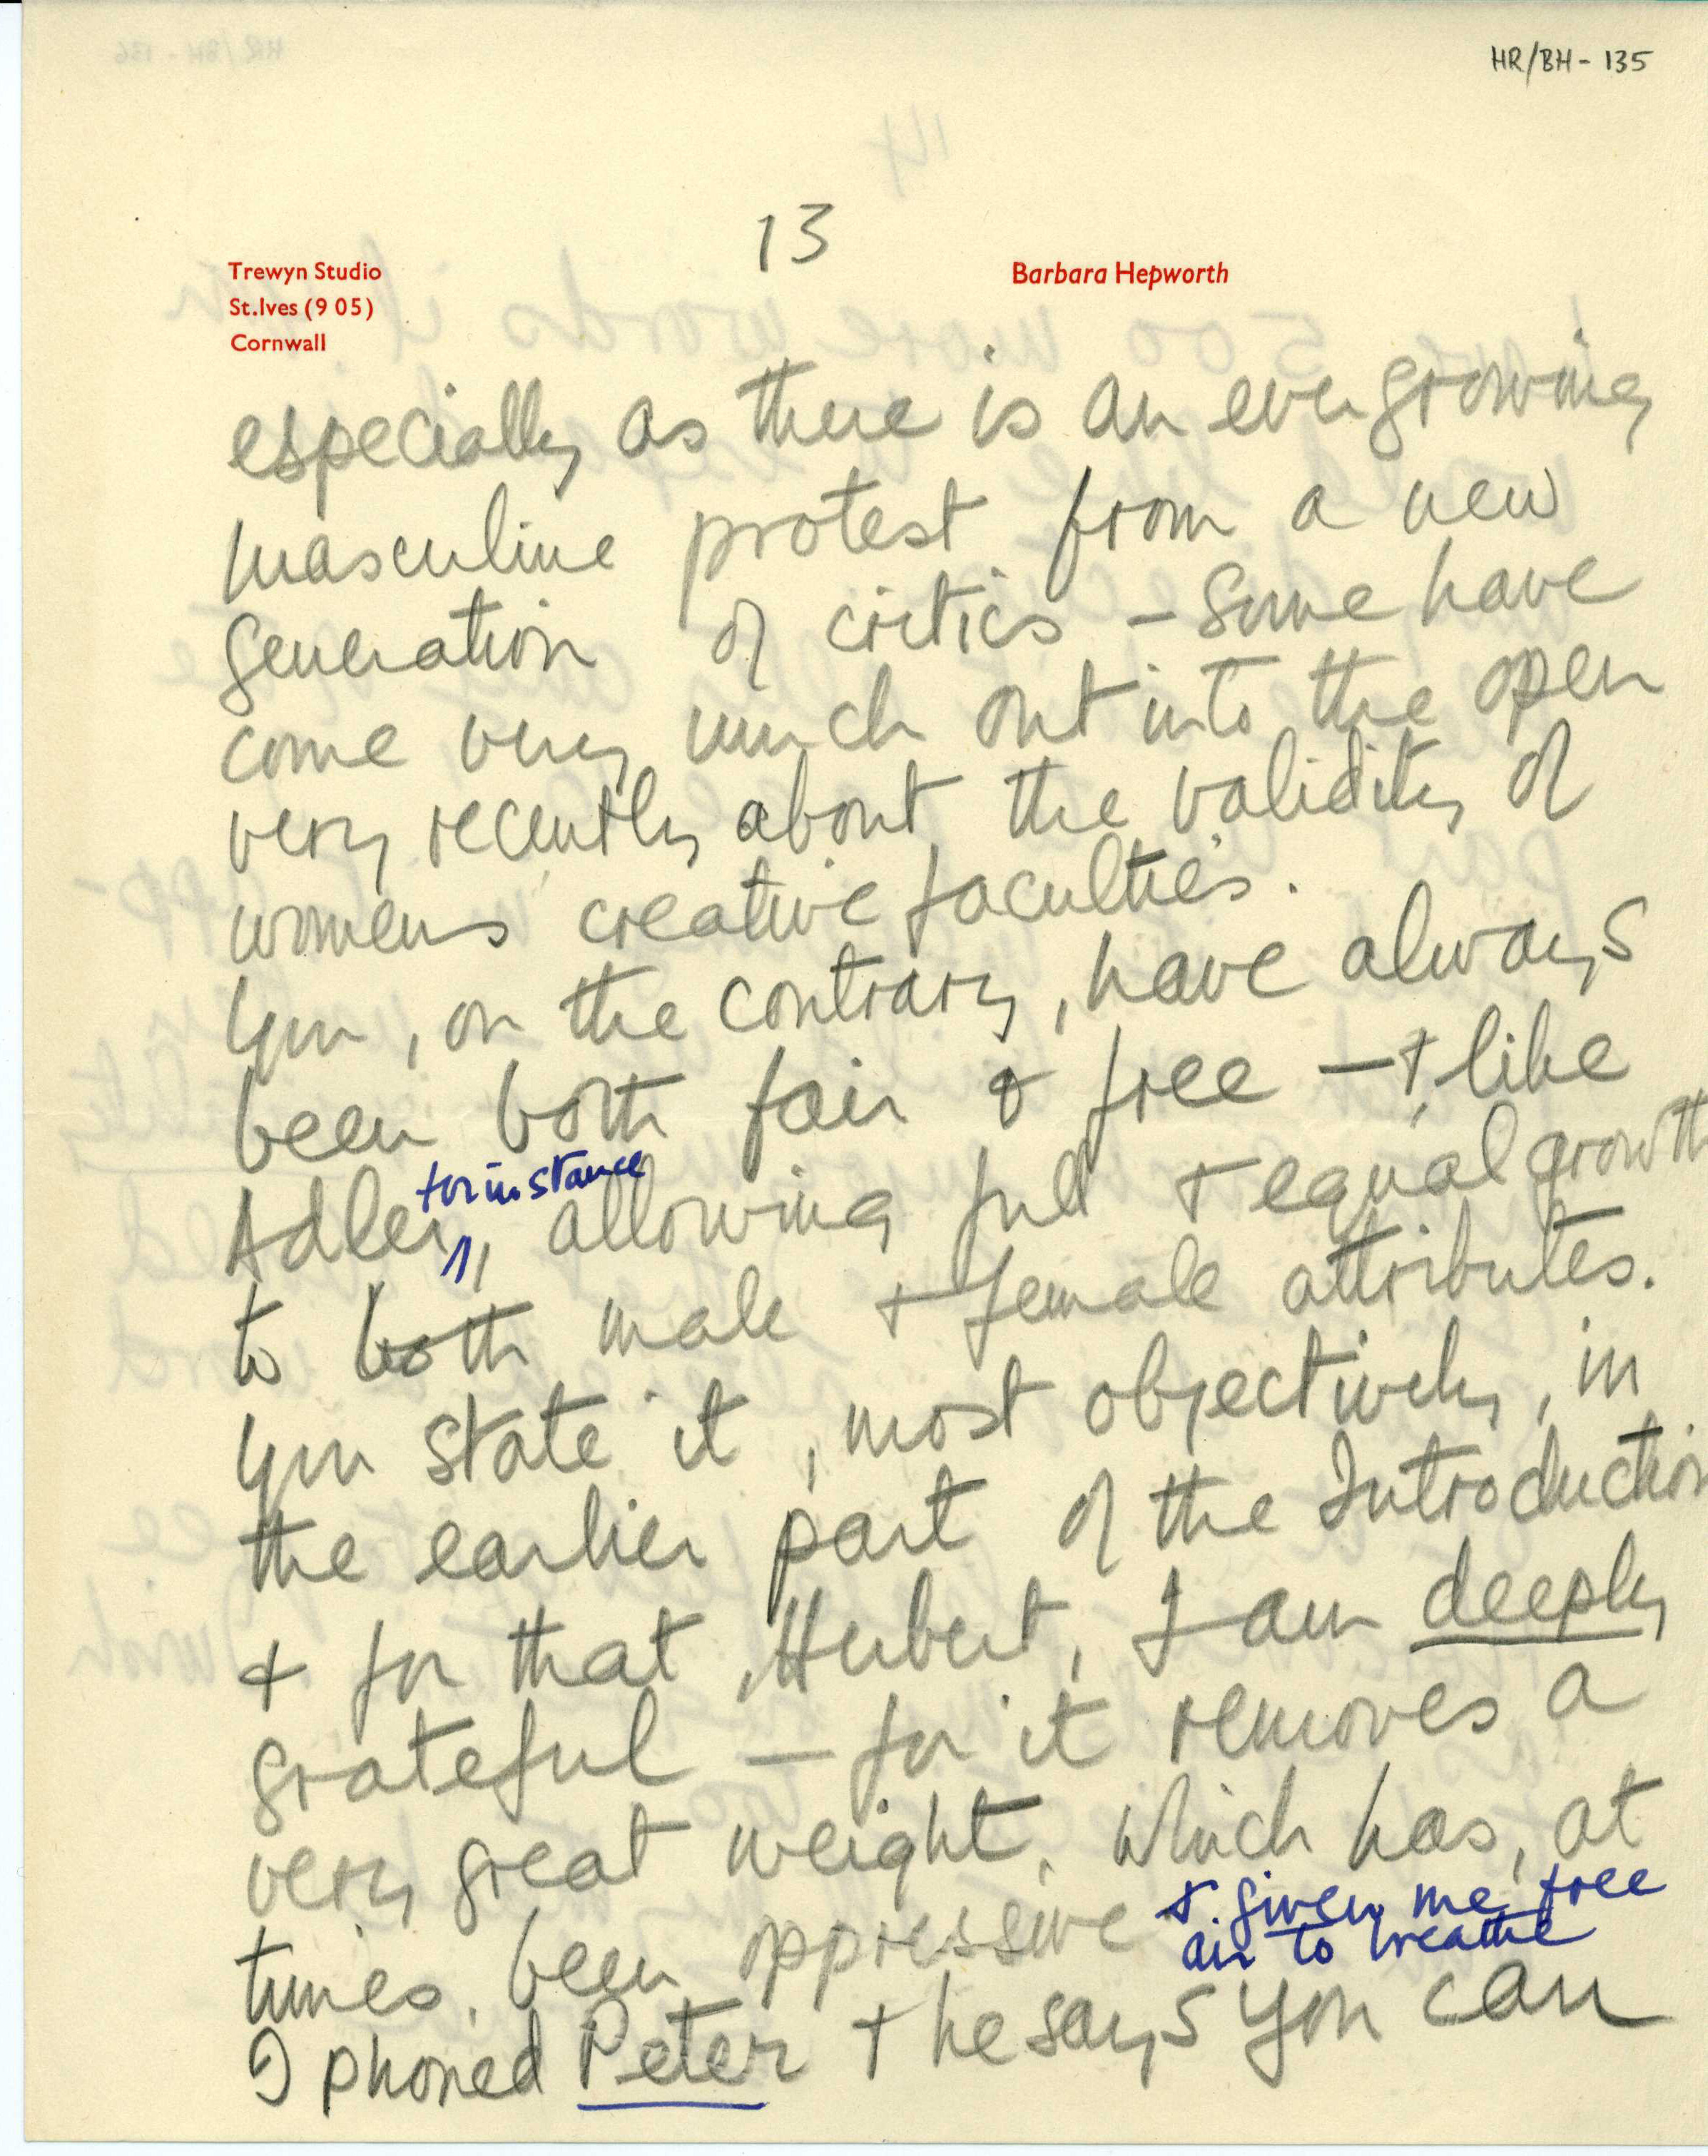 HR/BH - 135
13
Trewyn Studio
St.Ives (9 05)
Cornwall
Barbara Hepworth
especially as there is an ever growing
masculine protest from a new
generation of critics – Some have
come very much out into the open
very recently about the validity of
womens creative faculties.
You, on the contrary, have always
been both fair & free – +, like
for instance
Adler, allowing full + equal growth
to both male + female attributes.
You state it, most objectively, in
the earlier part of the Introduction
+ for that, Herbert, I am deeply
grateful – for it removes a
very great weight, which has, at
times, been oppressive + given me free
air to breathe
I phoned Peter + he says you can